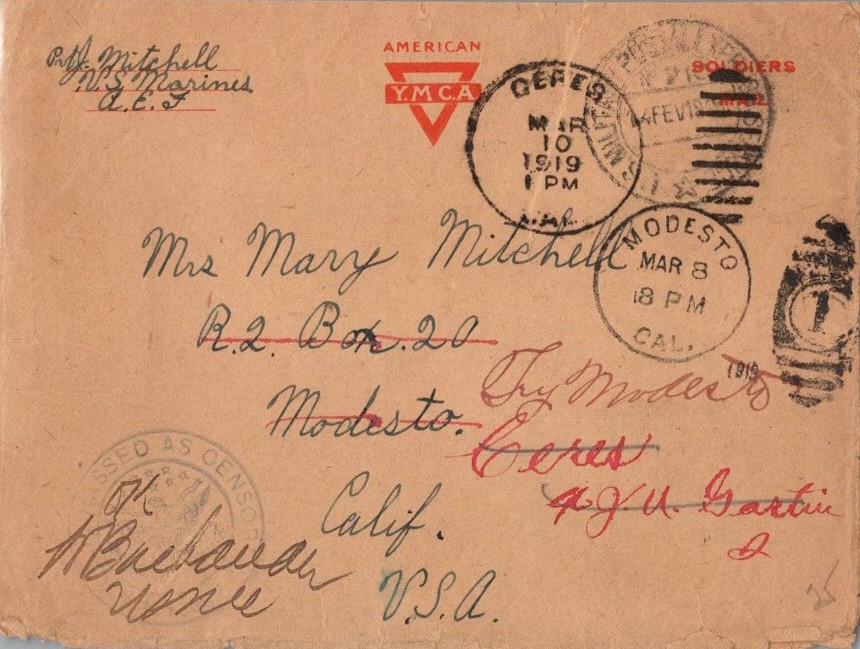 Pvt J. Mitchell
U.S. Marines
A.E.F
AMERICAN
Y.M.C.A.
SOLDIERS
MAIL
CERES
MAR
10
1919
1 PM
CAL.
4 FEV 19
MODESTO
MAR 8
8 PM
CAL.
1919
1
Mrs Mary Mitchell
R.2. Box. 20
Modesto.
Calif.
U.S.A.
Try Modesto
Ceres
PASSED AS CENSOR
OK
USMC
25